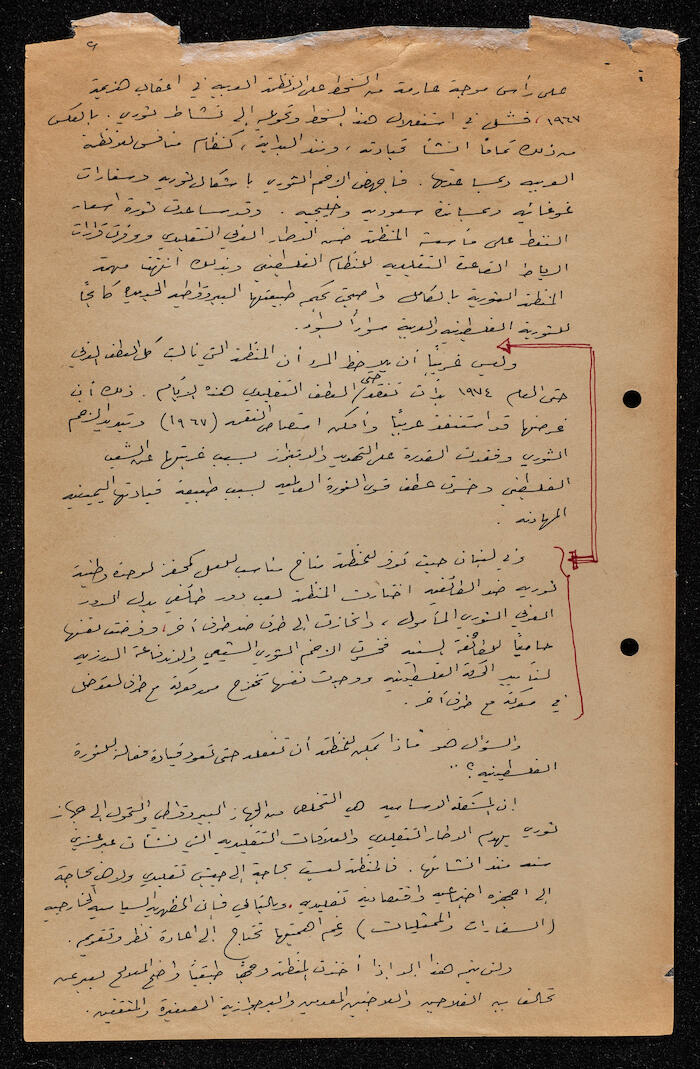 ٤
على رأس موجة عارمة من السخط على الانظمة العربية في اعقاب هزيمة
١٩٦٧، فشل في استغلال هذا السخط وتحويله إلى نشاط ثوري. بالعكس
من ذلك تماماً انشأ قيادته، ومنذ البداية، كنظام منافس للانظمة
العربية وبمساعدتها. فاجهض الزخم الثوري باشكال ثورية وسفارات
غوغائية وبمساندة سعودية وخليجية. وقد ساعدت ثورة اسعار
النفط على مأسسة المنظمة ضمن الاطار العربي التقليدي ووفرت قرارات
الرباط القاعدة التقليدية للنظام الفلسطيني وبذلك انتهت مهمة
المنظمة الثورية بالكامل واصبحت بحكم طبيعتها البيروقراطية الجديدة كابحاً
للثورية الفلسطينية والعربية سواءً بسواء.
وليس غريباً أن يلاحظ المرء أن المنظمة التي نالت كل العطف العربي
حتى العام ١٩٧٤ بدأت تفتقد حتى العطف التقليدي هذه الايام. ذلك أن
غرضها قد استنفذ عربياً وأمكن امتصاص النقمة (١٩٦٧) وتبديد الزخم
الثوري وفقدت القدرة على التهديد والابتزاز بسبب غربتها عن الشعب
الفلسطيني وخسرت عطف قوى الثورة العالمية بسبب طبيعة قيادتها اليمينية
المهادنة.
وفي لبنان حيث توفر للمنظمة مناخ مناسب للعمل كمحفز لوحدة وطنية
ثورية ضد الطائفية اختارت المنظمة لعب دور طائفي بدل الدور
العربي الثوري المأمول، وانحازت إلى طرف ضد طرف آخر، وفرضت نفسها
حامياً للطائفة السنية فخسرت الزخم الثوري الشيعي والاندفاعة الدرزية
لتأييد الحركة الفلسطينية ووجدت نفسها تخرج من معركة مع طرف لتدخل
في معركة مع طرف آخر.
والسؤال هو ماذا يمكن للمنظمة أن تفعله حتى تعود قيادة فعالة للثورة
الفلسطينية؟..
إن المشكلة الاساسية هي التخلص من الجهاز البيروقراطي والتحول إلى جهاز
ثوري يهدم الاطار التقليدي والعلاقات التقليدية التي نشأت عبر عشرين
سنة منذ انشائها. فالمنظمة ليست بحاجة إلى جيش تقليدي ولا هي بحاجة
إلى اجهزة اجتماعية واقتصادية تقليدية وبالتالي فإن المظهرية السياسية الخارجية
(السفارات والممثليات) رغم اهميتها تحتاج إلى اعادة نظر وتقويم.
ولن يتم هذا إلا إذا أخذت المنظمة وجهاً طبقياً واضح المعالم يعبر عن
تحالف بين الفلاحين واللاجئين المعدمين والبرجوازية الصغيرة والمثقفين.